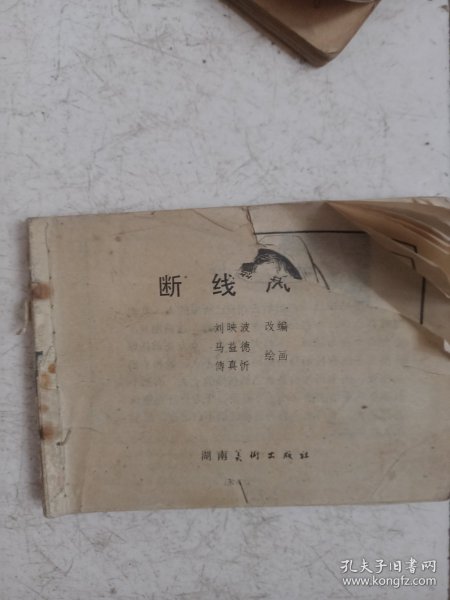 断线风
刘映波 改编
马益德
傅真忻 绘画
湖南美术出版社
孔夫子旧书网
www.kongfz.com